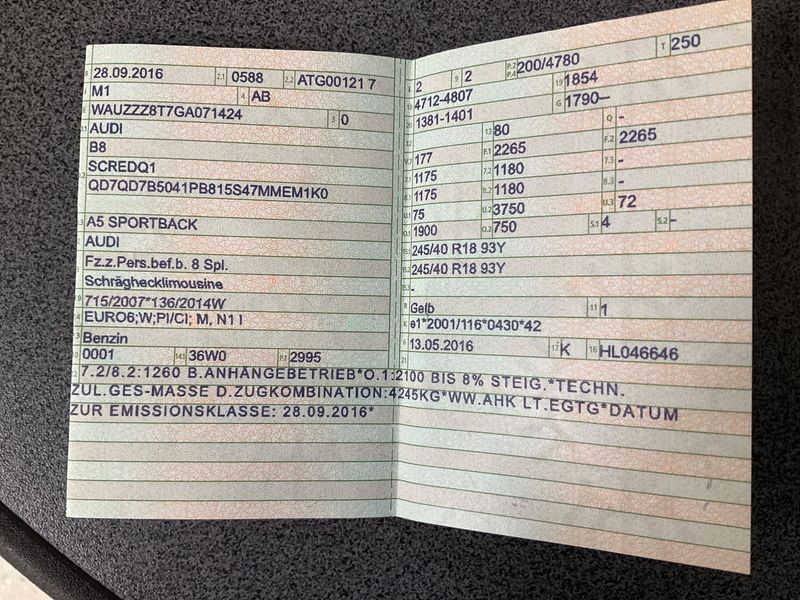 B 28.09.2016 2.1 0588 2.2 ATG00121 7
J M1 4 AB
E WAUZZZ8T7GA071424 3 0
AUDI
B8
SCREDQ1
QD7QD7B5041PB815S47MMEM1K0
A5 SPORTBACK
AUDI
Fz.z.Pers.bef.b. 8 Spl.
Schräghecklimousine
715/2007*136/2014W
EURO6;W;PI/CI; M, N1 I
Benzin
10 0001 14.1 36W0 P.1 2995
22 7.2/8.2:1260 B.ANHÄNGEBETRIEB*O.1:2100 BIS 8% STEIG.*TECHN.
ZUL.GES-MASSE D.ZUGKOMBINATION:4245KG*WW.AHK LT.EGTG*DATUM
ZUR EMISSIONSKLASSE: 28.09.2016*
L 2 9 2 P.2 P.4 200/4780 T 250
18 4712-4807 19 1854
20 1381-1401 G 1790–
12 13 80 Q -
V.7 177 F.1 2265 F.2 2265
7.1 1175 7.2 1180 7.3 -
8.1 1175 8.2 1180 8.3 -
U.1 75 U.2 3750 U.3 72
O.1 1900 O.2 750 S.1 4 S.2 -
15.1 245/40 R18 93Y
15.2 245/40 R18 93Y
15.3 -
R Gelb 11 1
K e1*2001/116*0430*42
6 13.05.2016 17 K 16 HL046646
21